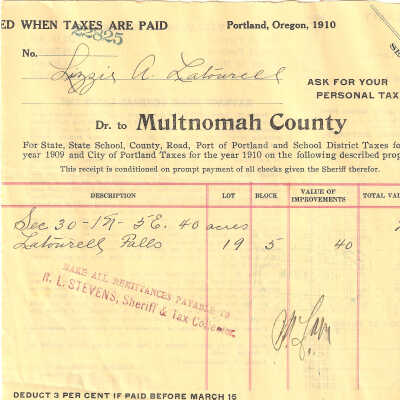 ED WHEN TAXES ARE PAID Portland, Oregon, 1910
22825
No.
Lizzie A. Latourell
ASK FOR YOUR
PERSONAL TAX
Dr. to Multnomah County
For State, State School, County, Road, Port of Portland and School District Taxes fo
year 1909 and City of Portland Taxes for the year 1910 on the following described prop
This receipt is conditioned on prompt payment of all checks given the Sheriff therefor.
DESCRIPTION LOT BLOCK VALUE OF IMPROVEMENTS TOTAL VALU
Sec 30-1N-5E. 40 acres
Latourell Falls 19 5 40
MAKE ALL REMITTANCES PAYABLE TO
R. L. STEVENS, Sheriff & Tax Collector.
DEDUCT 3 PER CENT IF PAID BEFORE MARCH 15